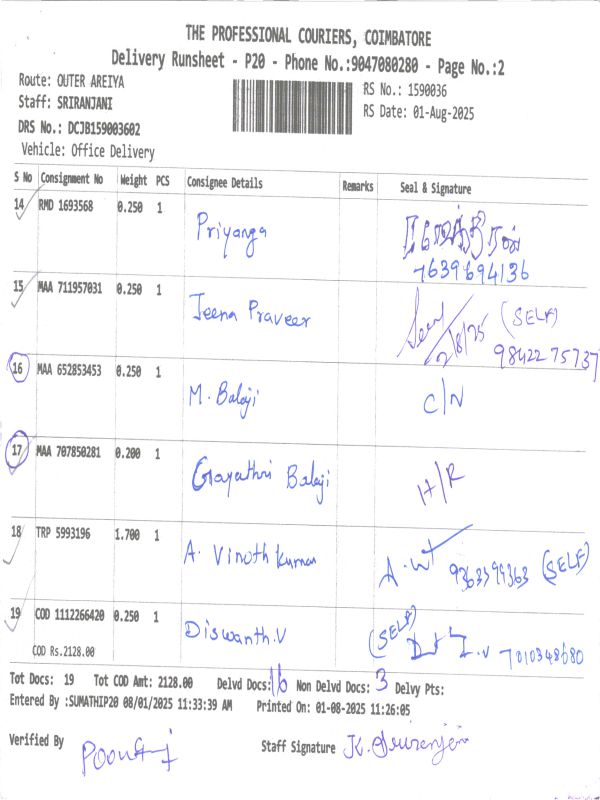 THE PROFESSIONAL COURIERS, COIMBATORE
Delivery Runsheet - P20 - Phone No.:9047080280 - Page No.:2
Route: OUTER AREIYA
RS No.: 1590036
Staff: SRIRANJANI
RS Date: 01-Aug-2025
DRS No.: DCJB159003602
Vehicle: Office Delivery
S No Consignment No Weight PCS Consignee Details Remarks Seal & Signature
14 RMD 1693568 0.250 1 Priyanga
7639694136
15 MAA 711957031 0.250 1 Jeena Praveer 2/8/25 (SELF)
98422 75737
16 MAA 652853453 0.250 1 M. Balaji C/N
17 MAA 707850281 0.200 1 Gayathri Balaji H/R
18 TRP 5993196 1.700 1 A. Vinoth Kumar (SELF)
19 COD 1112266420 0.250 1 Diswanth.V (SELF) 7010348680
COD Rs.2128.00
Tot Docs: 19 Tot COD Amt: 2128.00 Delvd Docs: 16 Non Delvd Docs: 3 Delvy Pts:
Entered By :SUMATHIP20 08/01/2025 11:33:39 AM Printed On: 01-08-2025 11:26:05
Verified By Staff Signature